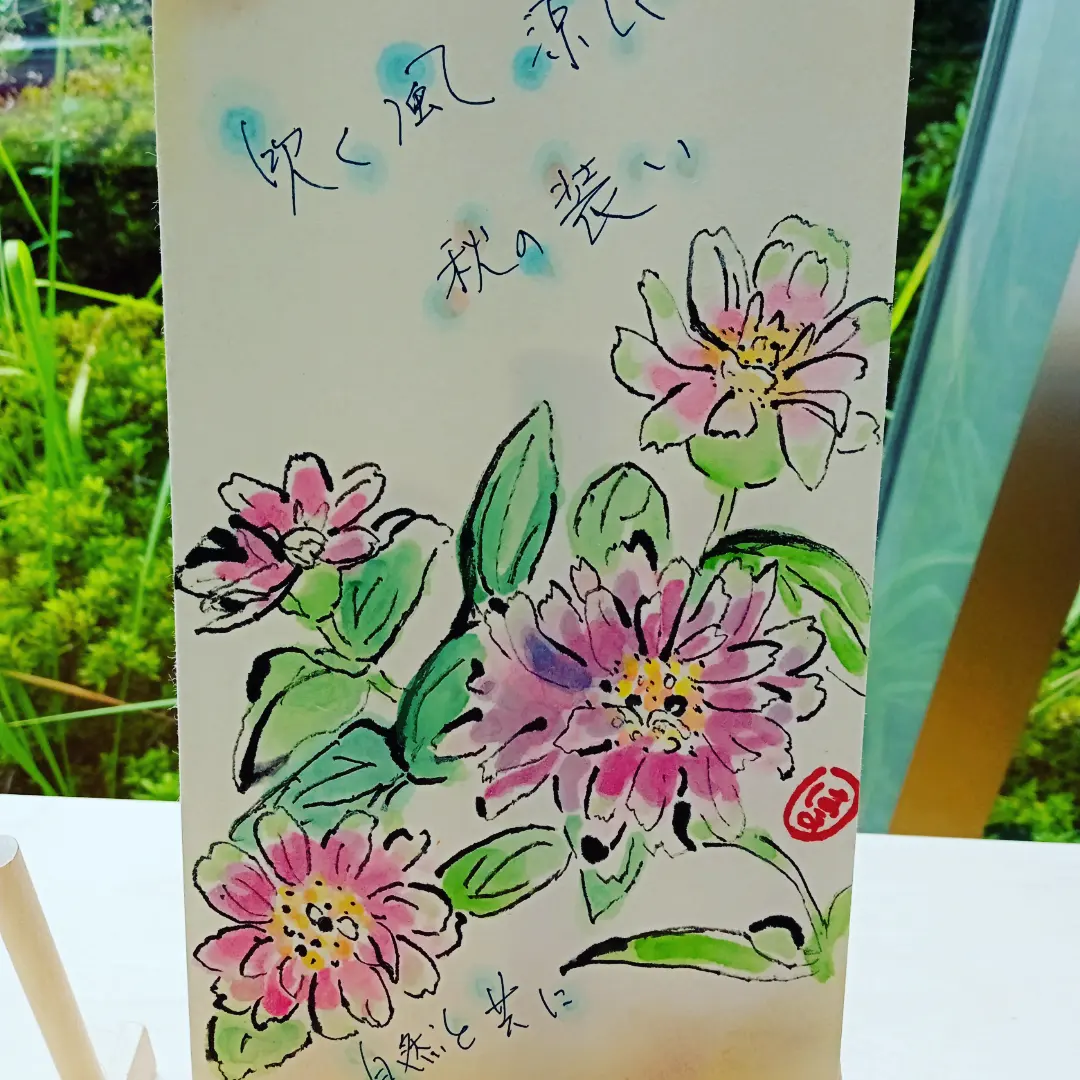 吹く風 涼し
秋の装い
自然と共に